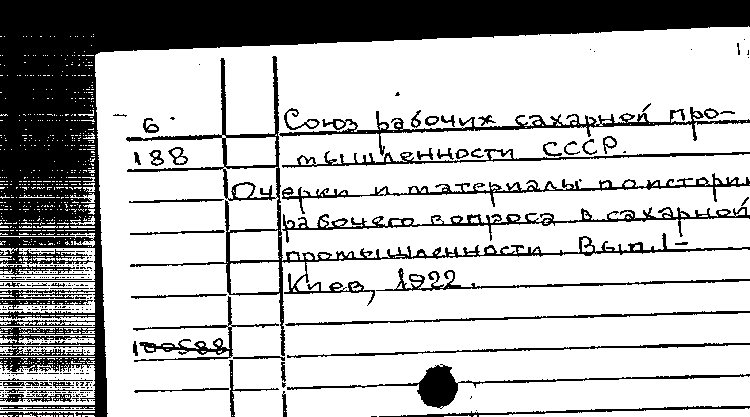 6 Союз рабочих сахарной про-
188 мышленности СССР.
Очерки и материалы по истории
рабочего вопроса в сахарной
промышленности. Вып. 1-
Киев, 1922.
100588